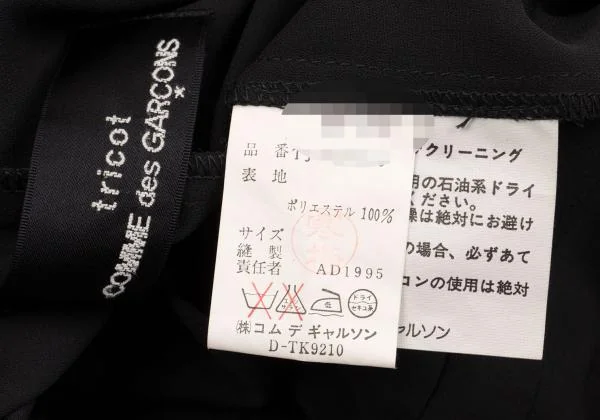 tricot
COMME des GARÇONS
品番 TJ
表地
ポリエステル 100%
サイズ
縫製
責任者 AD1995
ドライ
セキユ系
㈱コム デ ギャルソン
D-TK9210
クリーニング
用の石油系ドライ
ください。
燥は絶対にお避け
の場合、必ずあて
コンの使用は絶対
ャルソン